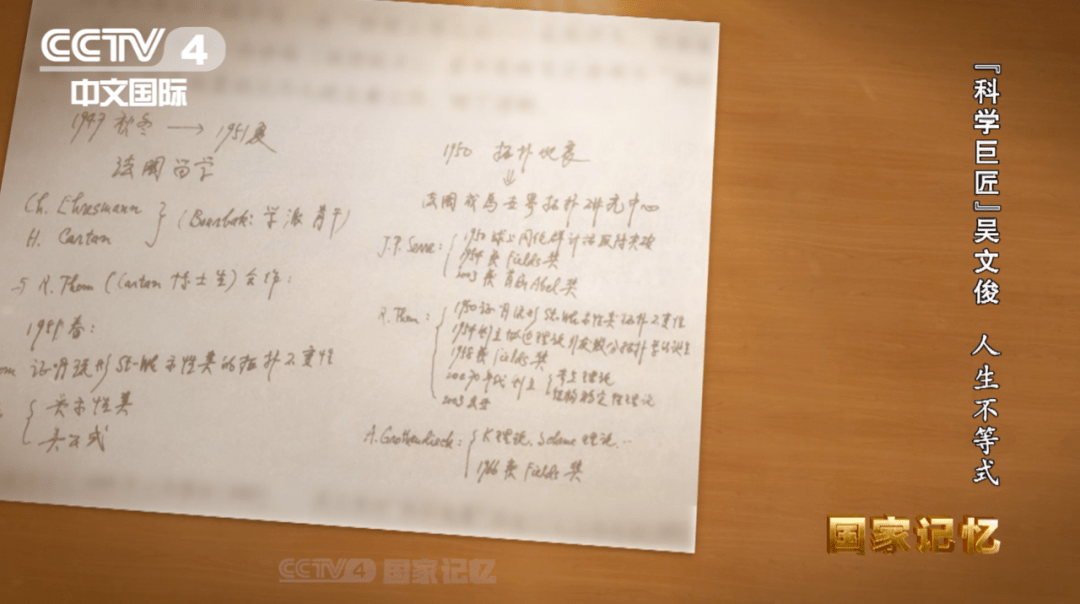 CCTV 4
中文国际
1947 秋冬 → 1951夏
法国留学
Ch. Ehresmann
H. Cartan
(Bourbaki 学派骨干)
与 R. Thom (Cartan 博士生) 合作:
春:
证明流形 St-Wh 示性类的拓扑不变性
吴示性类
吴公式
1950 拓扑地震
↓
法国成为世界拓扑研究中心
J.P. Serre:
1950 球上同伦群计法取得突破
1954 获 Fields 奖
2003 获首届 Abel 奖
R. Thom:
1950 证明流形 St-Wh 示性类拓扑不变性
1954 创立协边理论
1958 获 Fields 奖
年代创立
奇点理论
结构稳定性理论
A. Grothendieck:
K理论、Scheme 理论…
1966 获 Fields 奖
『科学巨匠』吴文俊 人生不等式
国家记忆
CCTV4 国家记忆